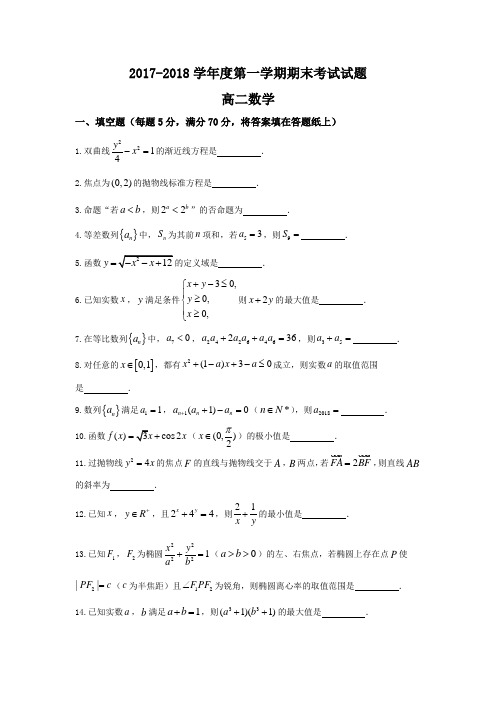 2017-2018 学年度第一学期期末考试试题
高二数学
一、填空题（每题 5 分，满分 70 分，将答案填在答题纸上）
1.双曲线 y²/4 − x² = 1 的渐近线方程是 ．
2.焦点为 (0,2) 的抛物线标准方程是 ．
3.命题“若 a < b，则 2^a < 2^b”的否命题为 ．
4.等差数列 {a_n} 中，S_n 为其前 n 项和，若 a_5 = 3，则 S_9 = ．
5.函数 y = √(−x² − x + 12) 的定义域是 ．
6.已知实数 x，y 满足条件 { x + y − 3 ≤ 0, y ≥ 0, x ≥ 0, 则 x + 2y 的最大值是 ．
7.在等比数列 {a_n} 中，a_7 < 0，a_2a_4 + 2a_2a_6 + a_4a_6 = 36，则 a_3 + a_5 = ．
8.对任意的 x ∈ [0,1]，都有 x² + (1 − a)x + 3 − a ≤ 0 成立，则实数 a 的取值范围
是 ．
9.数列 {a_n} 满足 a_1 = 1，a_{n+1}(a_n + 1) − a_n = 0（n ∈ N*），则 a_2018 = ．
10.函数 f(x) = √3x + cos 2x（x ∈ (0, π/2)）的极小值是 ．
11.过抛物线 y² = 4x 的焦点 F 的直线与抛物线交于 A，B 两点，若 FA = 2BF，则直线 AB
的斜率为 ．
12.已知 x，y ∈ R⁺，且 2^x + 4^y = 4，则 2/x + 1/y 的最小值是 ．
13.已知 F_1，F_2 为椭圆 x²/a² + y²/b² = 1（a > b > 0）的左、右焦点，若椭圆上存在点 P 使
| PF_2 |= c（c 为半焦距）且 ∠F_1PF_2 为锐角，则椭圆离心率的取值范围是 ．
14.已知实数 a，b 满足 a + b = 1，则 (a³ + 1)(b³ + 1) 的最大值是 ．